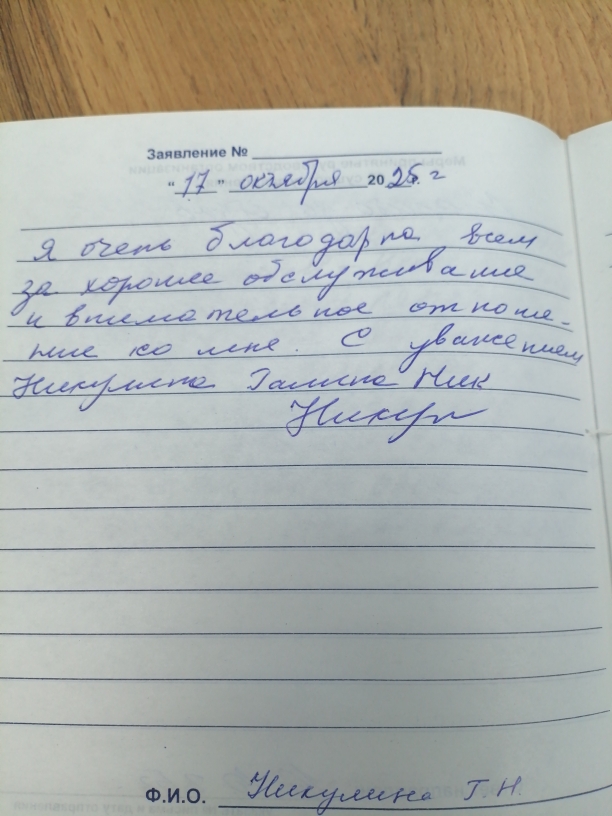 Заявление №
"17" октября 2025 г
Я очень благодарна всем
за хорошее обслуживание
и внимательное отноше-
ние ко мне. С уважением
Никулина Галина Ник
Никул
Ф.И.О. Никулина Г.Н.